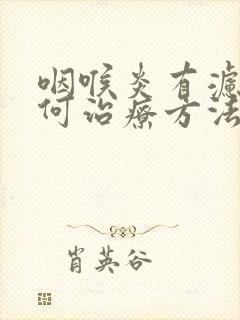 咽喉炎有濾
何治療方法
肖英谷